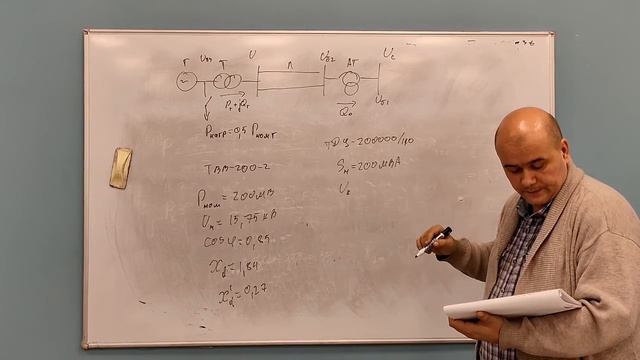 Г Т U Л АТ U_c
P_т+jQ_т Q_0
P_нагр=0,5 P_ном г
ТВВ-200-2
P_ном=200МВ
U_н=15,75 кВ
cosφ=0,85
X_d=1,84
X'_d=0,27
ТДЦ-200000/110
S_н=200МВА
U_в